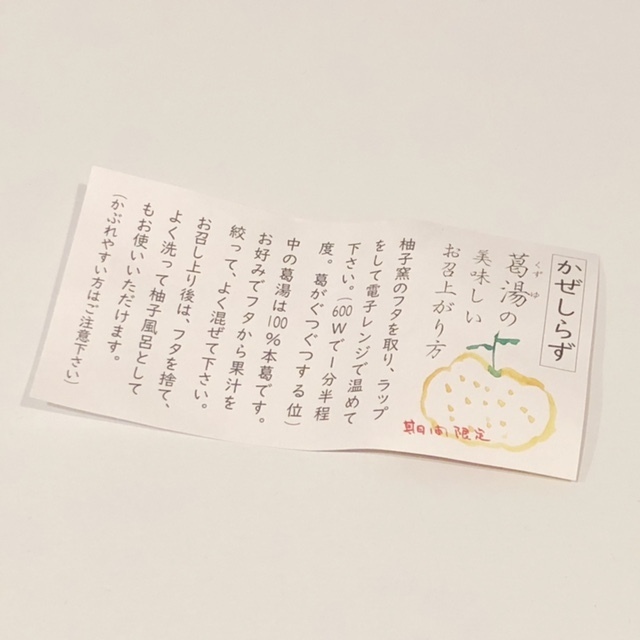 かぜしらず
葛湯の
くず ゆ
美味しい
お召上がり方
期間限定
柚子窯のフタを取り、ラップ
をして電子レンジで温めて
下さい。(600Wで1分半程
度。葛がぐつぐつする位)
中の葛湯は100%本葛です。
お好みでフタから果汁を
絞って、よく混ぜて下さい。
お召し上り後は、フタを捨て、
よく洗って柚子風呂として
もお使いいただけます。
(かぶれやすい方はご注意下さい)